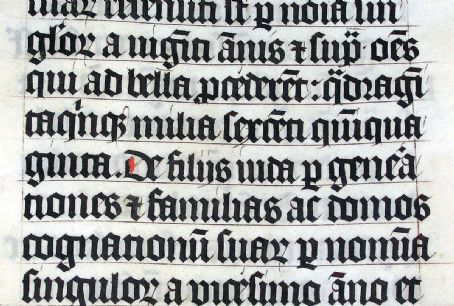 uar recensiti st p noīa sin
gulor a vigīti ānis ⁊ sup̄. oēs
qui ad bella ꝓcederēt: q̄dragī
taqnq milia sexcēti qui̅qua
ginta. De filiis iuda p geneā
tiones ⁊ familias ac domos
cognationū suar p nomīa
singulor a vicesimo āno et